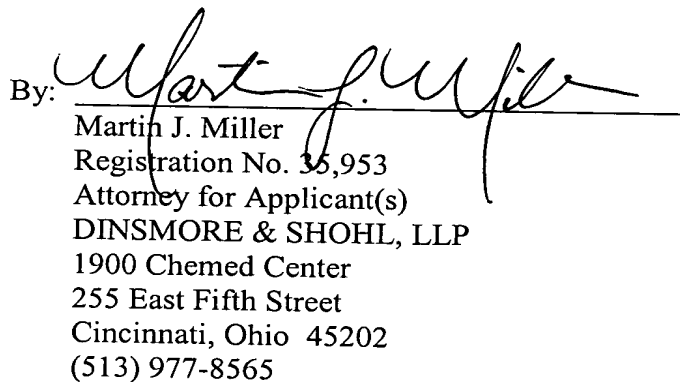 By: Martin J. Miller
Martin J. Miller
Registration No. 35,953
Attorney for Applicant(s)
DINSMORE & SHOHL, LLP
1900 Chemed Center
255 East Fifth Street
Cincinnati, Ohio 45202
(513) 977-8565